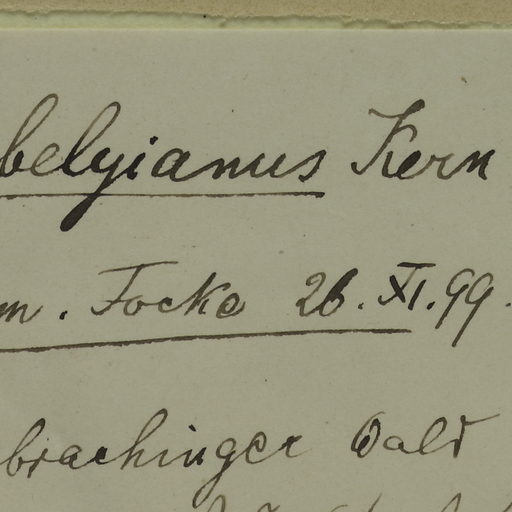 belgianus Kern
m. Focke 26. XI. 99.
brachinger Wald